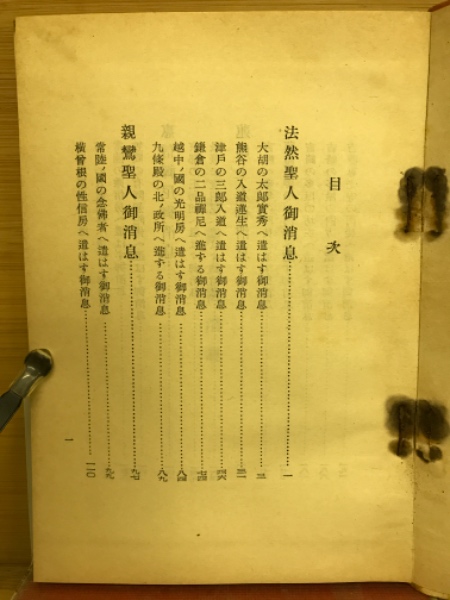 目次
法然聖人御消息……一
大胡の太郎實秀へ遣はす御消息……三
熊谷の入道蓮生へ遣はす御消息……三一
津戸の三郎入道へ遣はす御消息……四六
鎌倉の二品禪尼へ進する御消息……七四
越中ノ國の光明房へ遣はす御消息……八四
九條殿の北ノ政所へ進する御消息……八九
親鸞聖人御消息……九七
常陸ノ國の念佛者へ遣はす御消息……九九
横曾根の性信房へ遣はす御消息……一一〇
一